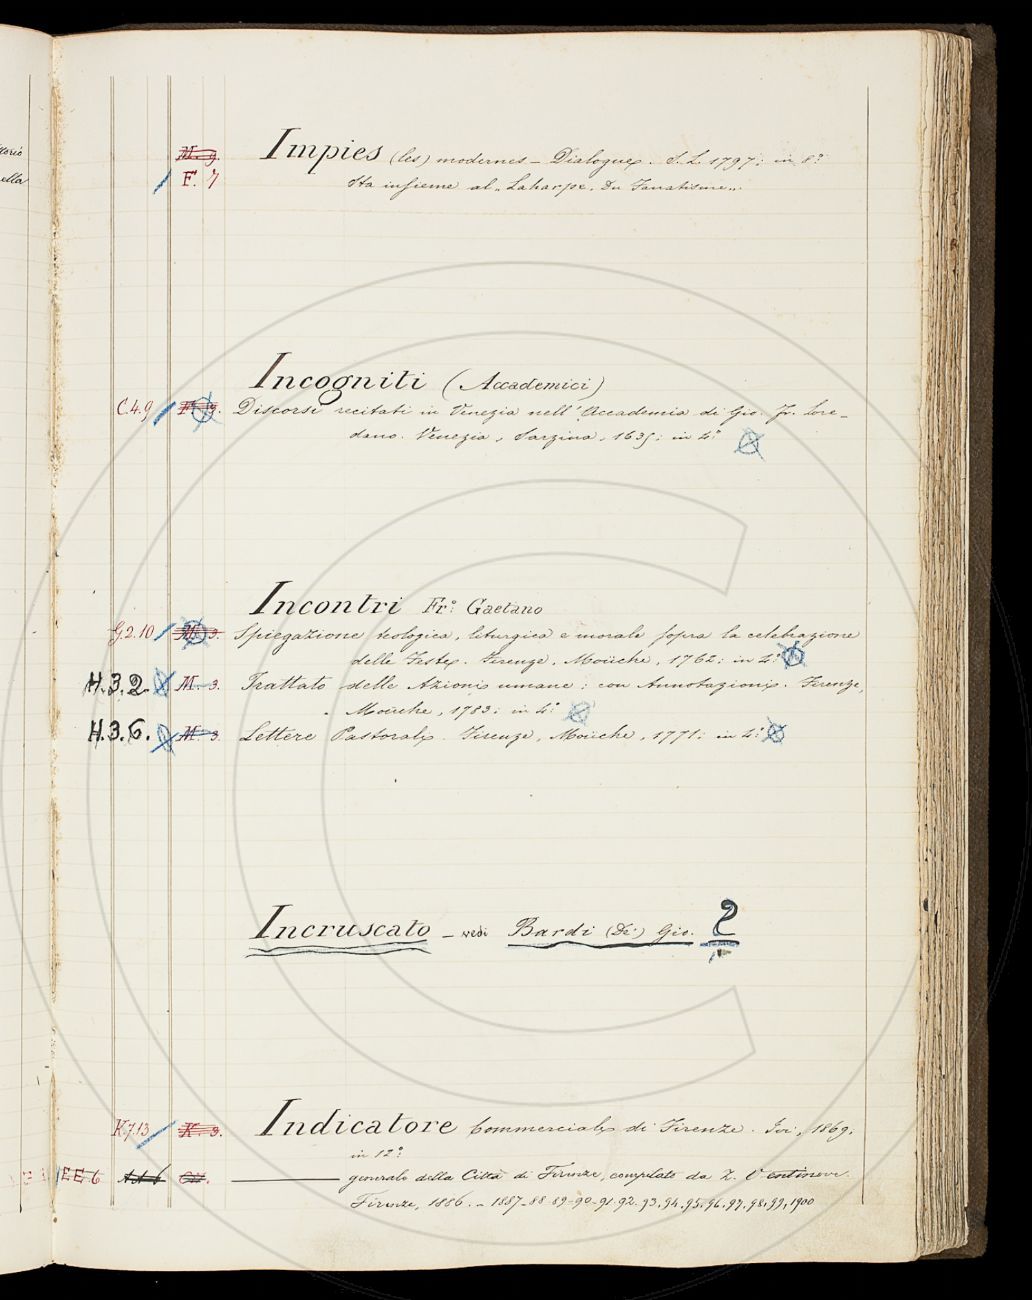 ttorio
ella
M. 9. Impies (les) modernes – Dialogues. S. L. 1797; in 8º
F. 7 Sta insieme al „Laharpe. Du Fanatisme„.
Incogniti (Accademici)
C.4.9 Discorsi recitati in Venezia nell'Accademia di Gio. Fr. Lore-
dano. Venezia, Sarzina, 1635; in 4º
Incontri Frº Gaetano
G.2.10 M. 3. Spiegazione teologica, liturgica e morale sopra la celebrazione
delle Feste. Firenze, Moücke, 1762; in 4º
H.3.2. M. 3. Trattato delle Azioni umane: con Annotazioni. Firenze,
Moücke, 1783; in 4º
H.3.6. M. 3. Lettere Pastorali. Firenze, Moücke, 1771; in 4º
Incruscato – vedi Bardi (De') Gio. 2
K.7.13 K. 3. Indicatore Commerciale di Firenze. Ivi, 1869;
in 12º
EE.6 generale della Città di Firenze, compilato da
Firenze, 1886. – 1887-88-89-90-91-92.93.94.95.96.97.98.99.1900